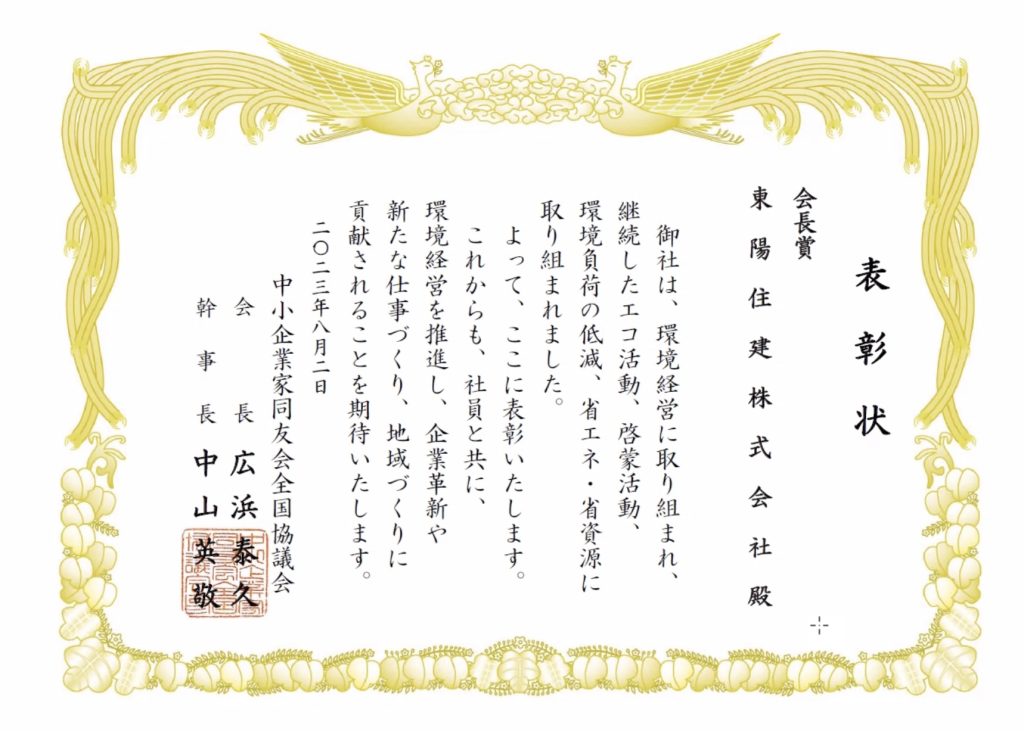 表彰状
会長賞
東陽住建株式会社殿
御社は、環境経営に取り組まれ、
継続したエコ活動、啓蒙活動、
環境負荷の低減、省エネ・省資源に
取り組まれました。
よって、ここに表彰いたします。
これからも、社員と共に、
環境経営を推進し、企業革新や
新たな仕事づくり、地域づくりに
貢献されることを期待いたします。
二〇二三年八月二日
中小企業家同友会全国協議会
会長 広浜泰久
幹事長 中山英敬